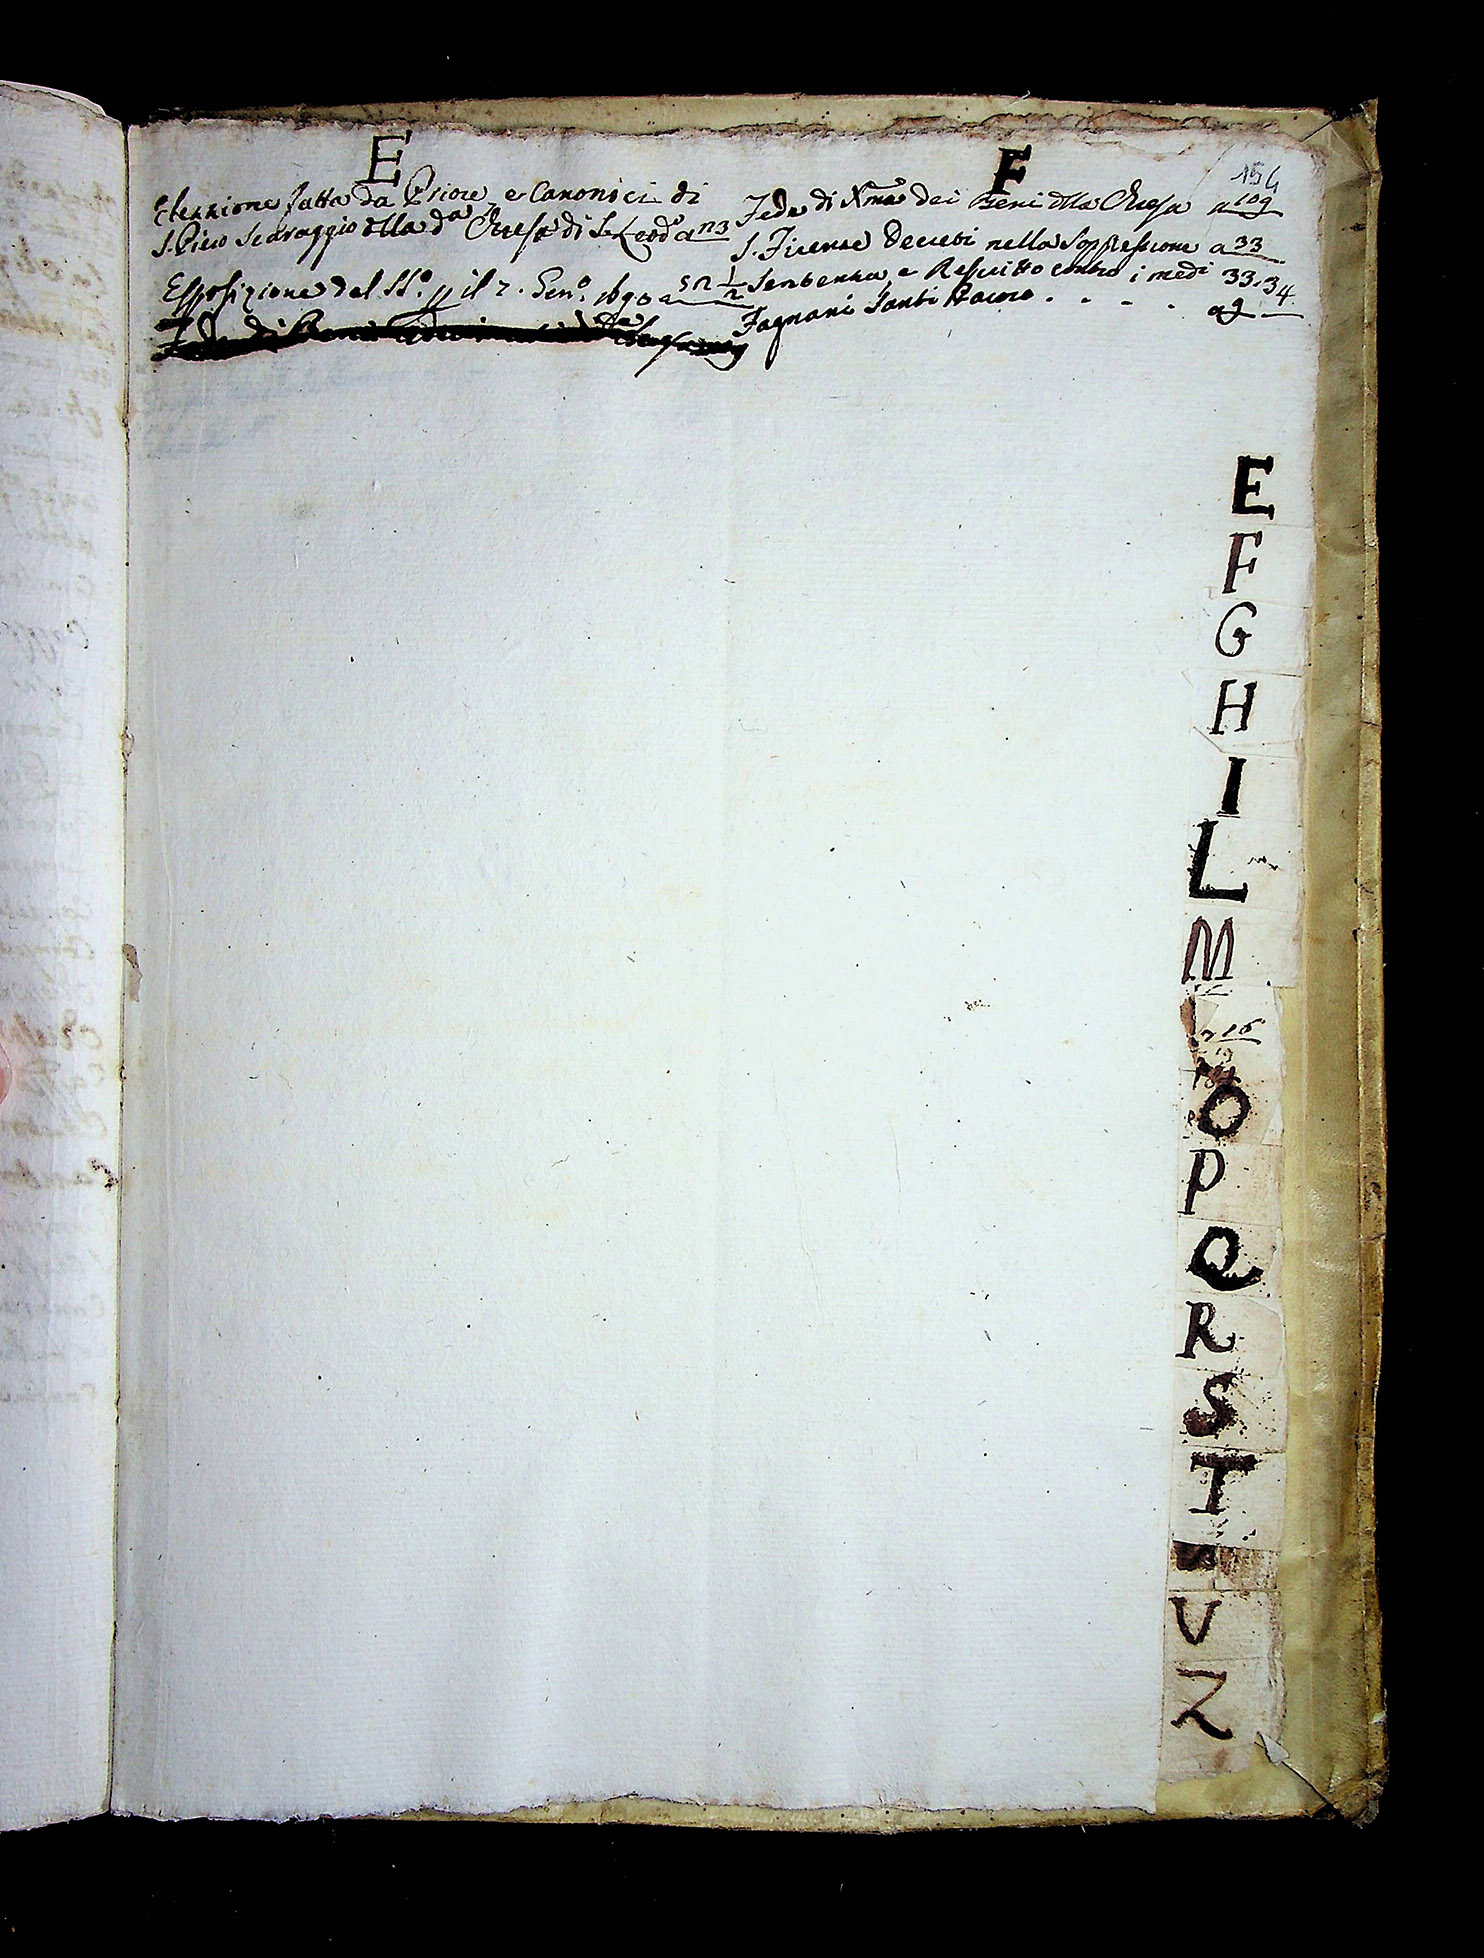 E
Elezzione fatta da Priore, e Canonici di
S. Piero Scaraggio della dª Chiesa di S. Leodº a 113
Esposizione del SSº. il 2. Genº. 1690 a 52 1/2
F
154
Fede di dei Beni della Chiesa a 109
S. Firenze Decreti nella Soppressione a 33
Sentenza, e Rescritto contro i medi 33.34
Fagnani Santi Bacoro . - - - . a 9
E
F
G
H
I
L
M
16
O
P
Q
R
S
T
V
Z